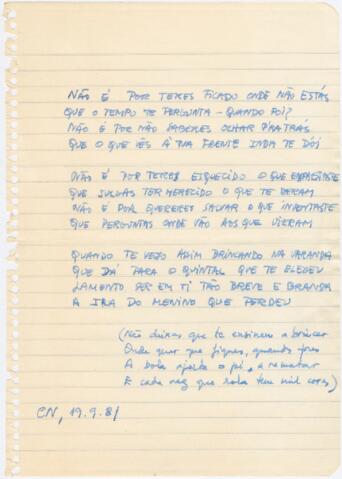 NÃO É POR TERES FICADO ONDE NÃO ESTÁS
QUE O TEMPO TE PERGUNTA – QUANDO FOI?
NÃO É POR NÃO SABERES OLHAR PRA TRÁS
QUE O QUE VÊS À TUA FRENTE INDA TE DÓI
NÃO É POR TERES ESQUECIDO O QUE
QUE JULGAS TER MERECIDO O QUE TE DERAM
NÃO É POR QUERERES SALVAR O QUE INVENTASTE
QUE PERGUNTAS ONDE VÃO AOS QUE VIERAM
QUANDO TE VEJO ASSIM BRINCANDO NA VARANDA
QUE DÁ PARA O QUINTAL QUE TE ELEGEU
LAMENTO SER EM TI TÃO BREVE E BRANDA
A IRA DO MENINO QUE PERDEU
(Não deixes que te ensinem a brincar
Onde quer que fiques, quando fores
A bola ajeita o pé, a rematar
E cada vez que rola tem mil cores)
CN, 19.9.81